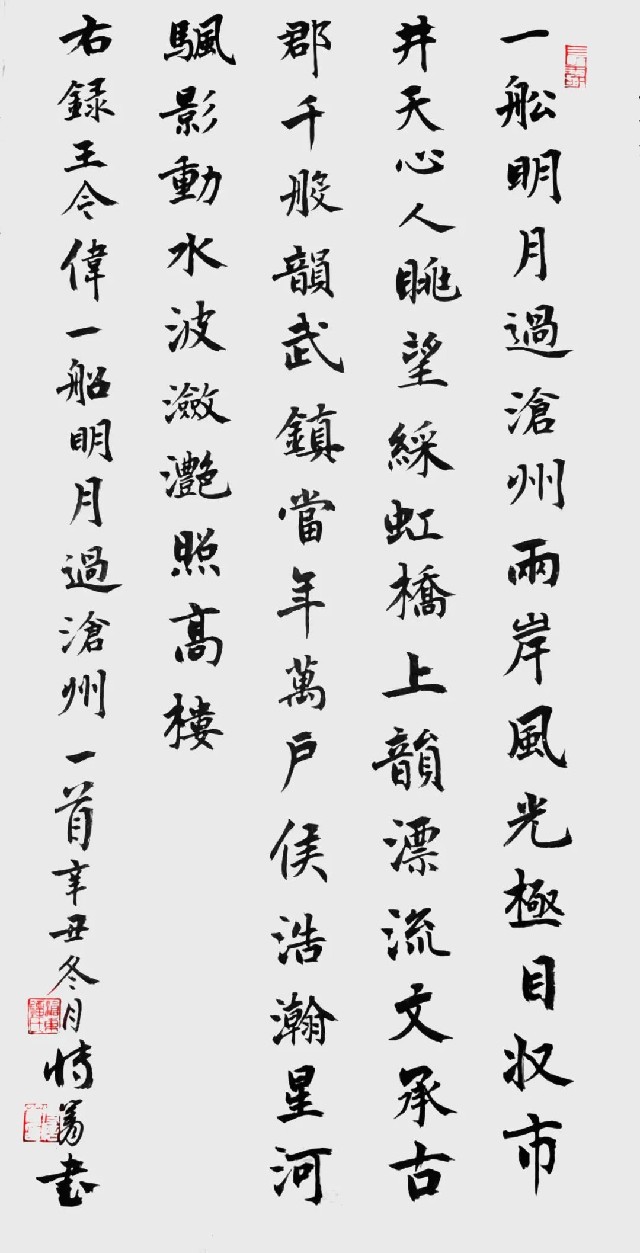 一舩明月過滄州兩岸風光極目収市
井天心人眺望綵虹橋上韻漂流文承古
郡千般韻武鎮當年萬戶侯浩瀚星河
颿影動水波瀲灩照高樓
右録王令偉一船明月過滄州一首辛丑冬月書